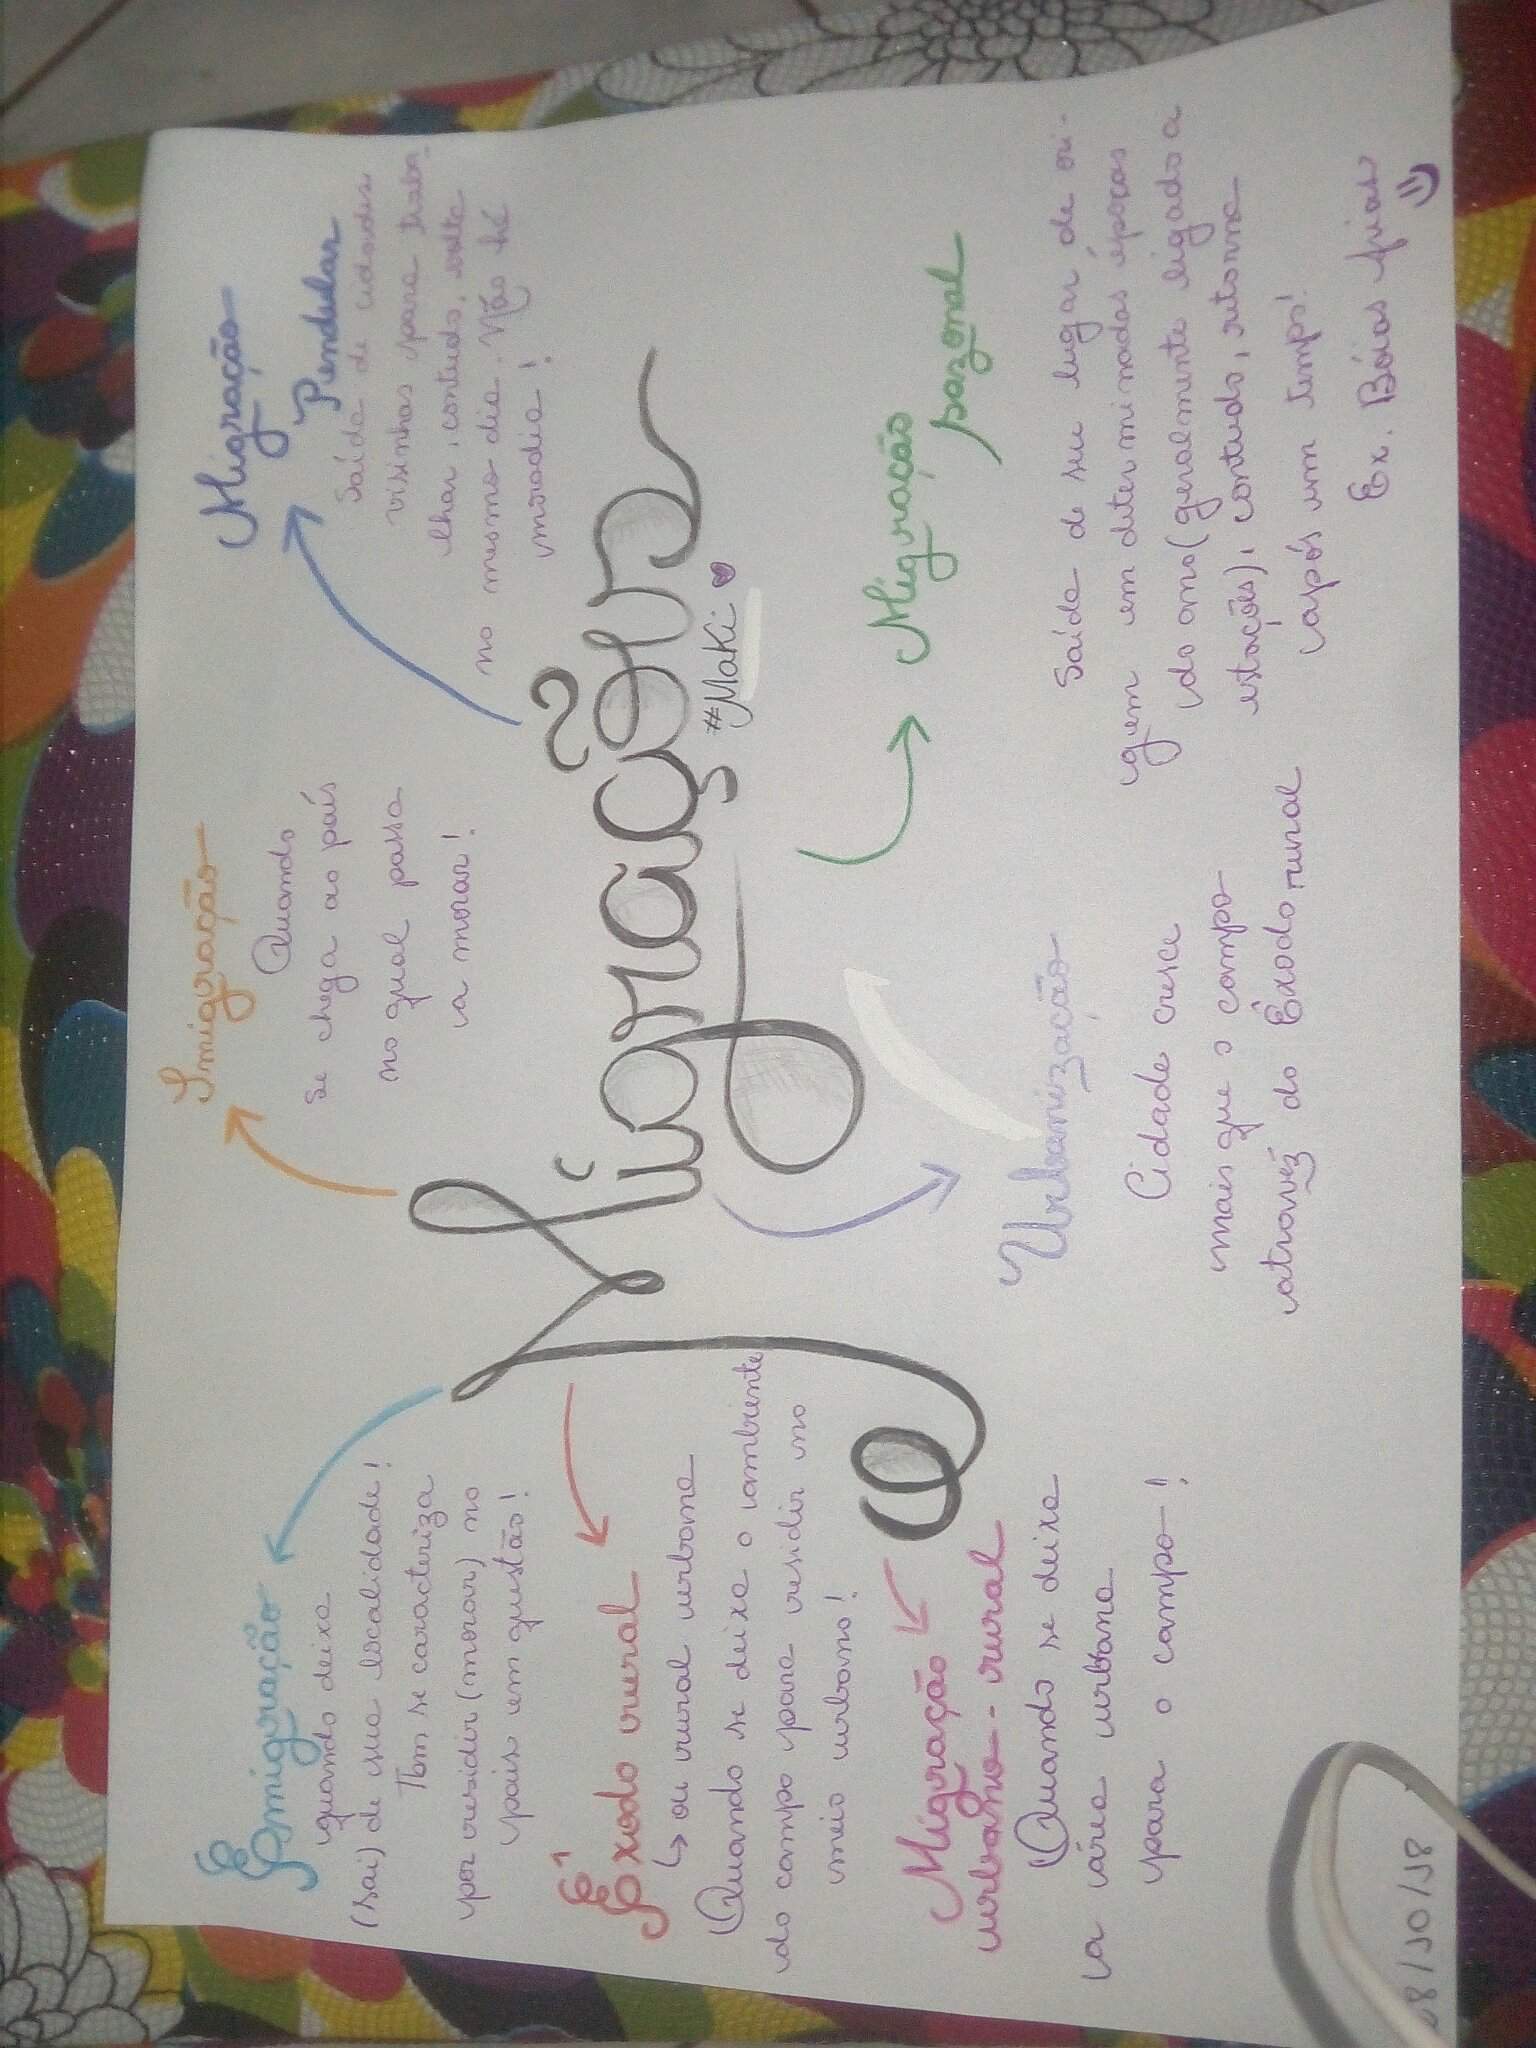 Emigração
quando deixa
(sai) de sua localidade!
Tbm se caracteriza
por residir (morar) no
país em questão!
Imigração
Quando
se chega ao país
no qual passa
a morar!
Migração
Pendular
Saída de cidades
visinhas para traba-
lhar, contudo, volta
no mesmo dia. Não há
moradia!
Migração
#Maki
Êxodo rural
↳ ou rural urbana
Quando se deixa o ambiente
do campo para residir no
meio urbano!
Migração
urbano-rural
Quando se deixa
a área urbana
para o campo!
Urbanização
Cidade cresce
mais que o campo
atravéz do Êxodo rural
Migração
sazonal
Saída de seu lugar de ori-
gem em determinadas épocas
do ano (geralmente ligado a
estações), contudo, retorna
após um tempo!
Ex. Bóias frias
08/10/18